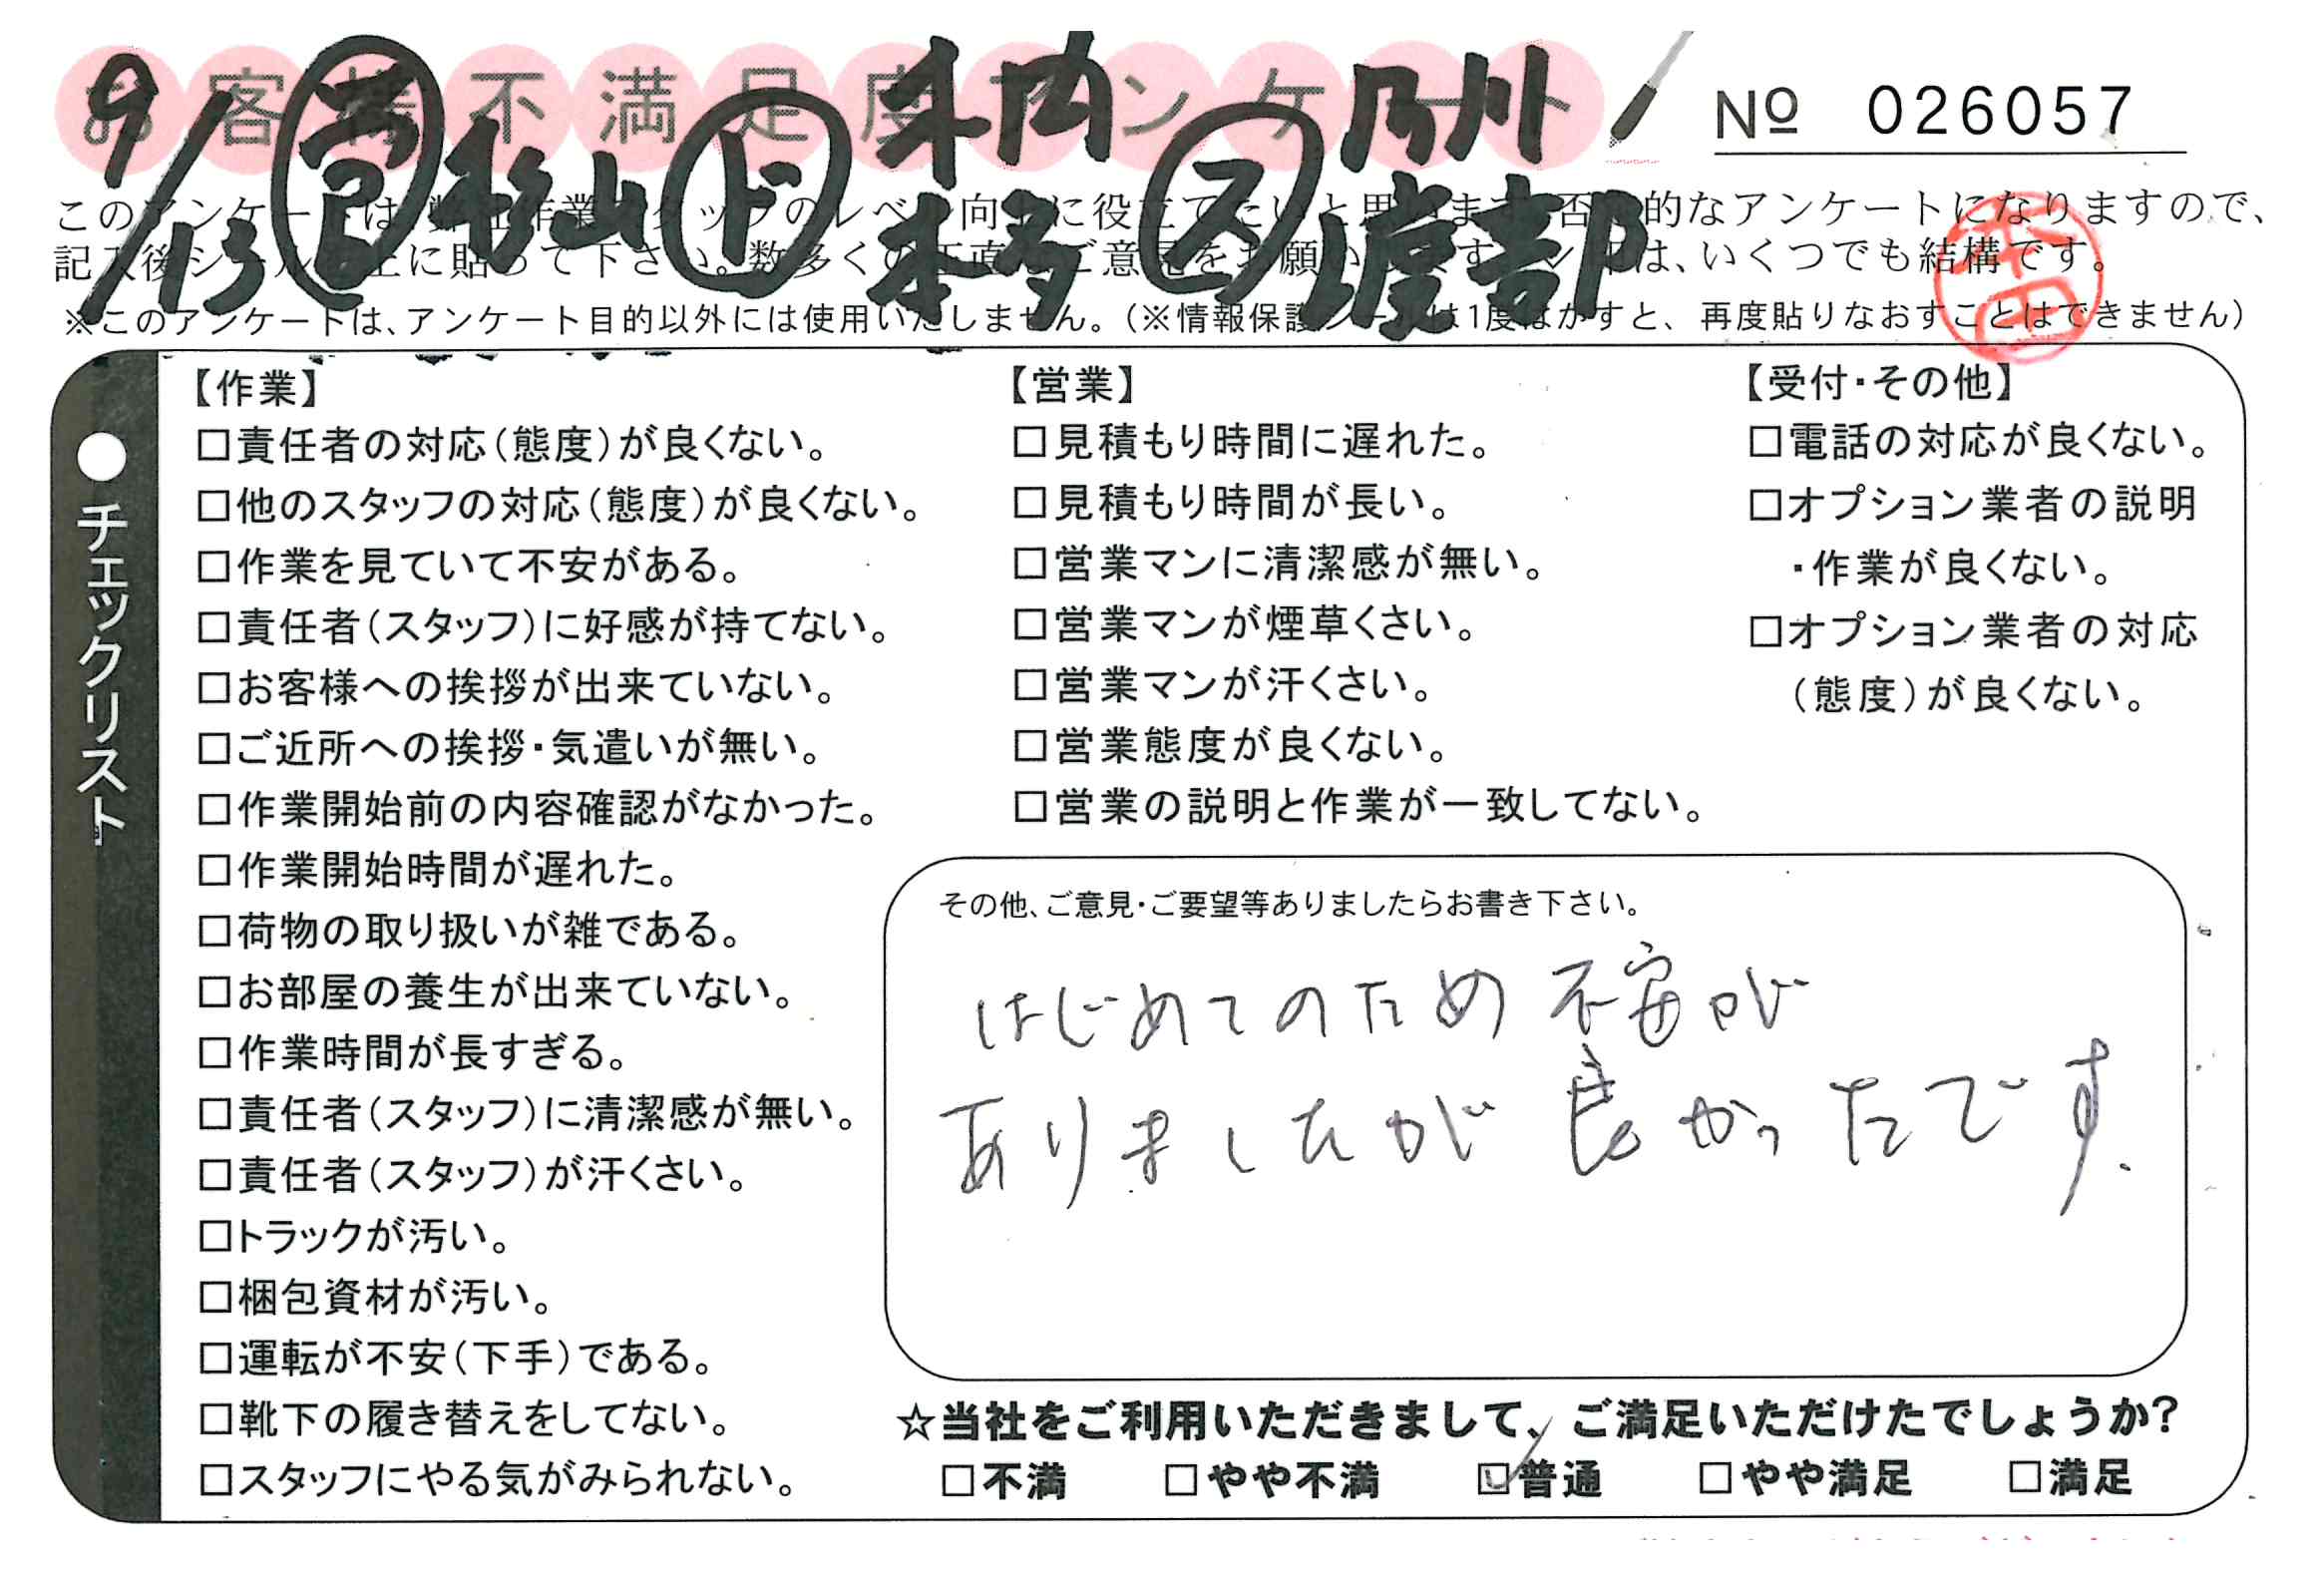 お客様不満足度アンケート
№ 026057
9/13 杉山 ド 本多 ス 乃川 渡部
このアンケートは、弊社作業スタッフのレベル向上に役立てたいと思います。否定的なアンケートになりますので、
記入後シールを上に貼って下さい。数多くの正直なご意見をお願いします。は、いくつでも結構です。
※このアンケートは、アンケート目的以外には使用いたしません。(※情報保護シールは1度はがすと、再度貼りなおすことはできません)
●チェックリスト
【作業】
□責任者の対応(態度)が良くない。
□他のスタッフの対応(態度)が良くない。
□作業を見ていて不安がある。
□責任者(スタッフ)に好感が持てない。
□お客様への挨拶が出来ていない。
□ご近所への挨拶・気遣いが無い。
□作業開始前の内容確認がなかった。
□作業開始時間が遅れた。
□荷物の取り扱いが雑である。
□お部屋の養生が出来ていない。
□作業時間が長すぎる。
□責任者(スタッフ)に清潔感が無い。
□責任者(スタッフ)が汗くさい。
□トラックが汚い。
□梱包資材が汚い。
□運転が不安(下手)である。
□靴下の履き替えをしてない。
□スタッフにやる気がみられない。
【営業】
□見積もり時間に遅れた。
□見積もり時間が長い。
□営業マンに清潔感が無い。
□営業マンが煙草くさい。
□営業マンが汗くさい。
□営業態度が良くない。
□営業の説明と作業が一致してない。
【受付・その他】
□電話の対応が良くない。
□オプション業者の説明
・作業が良くない。
□オプション業者の対応
(態度)が良くない。
その他、ご意見・ご要望等ありましたらお書き下さい。
はじめてのため不安が
ありましたが良かったです.
☆当社をご利用いただきまして、ご満足いただけたでしょうか?
□不満 □やや不満 ☑普通 □やや満足 □満足